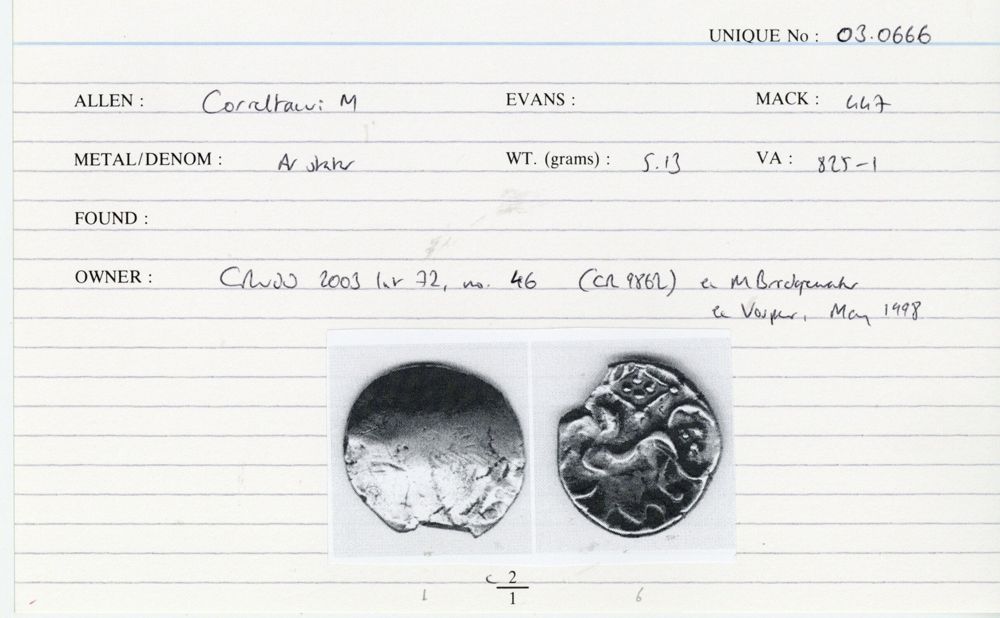 UNIQUE No : 03.0666
ALLEN : Correltauvi M EVANS : MACK : 447
METAL/DENOM : Ar stater WT. (grams) : 5.13 VA : 825-1
FOUND :
OWNER : CRUDD 2003 list 72, no. 46 (CR 9862) ex M Bridgewater
ex Vosper, May 1998
c 2
1
1 6